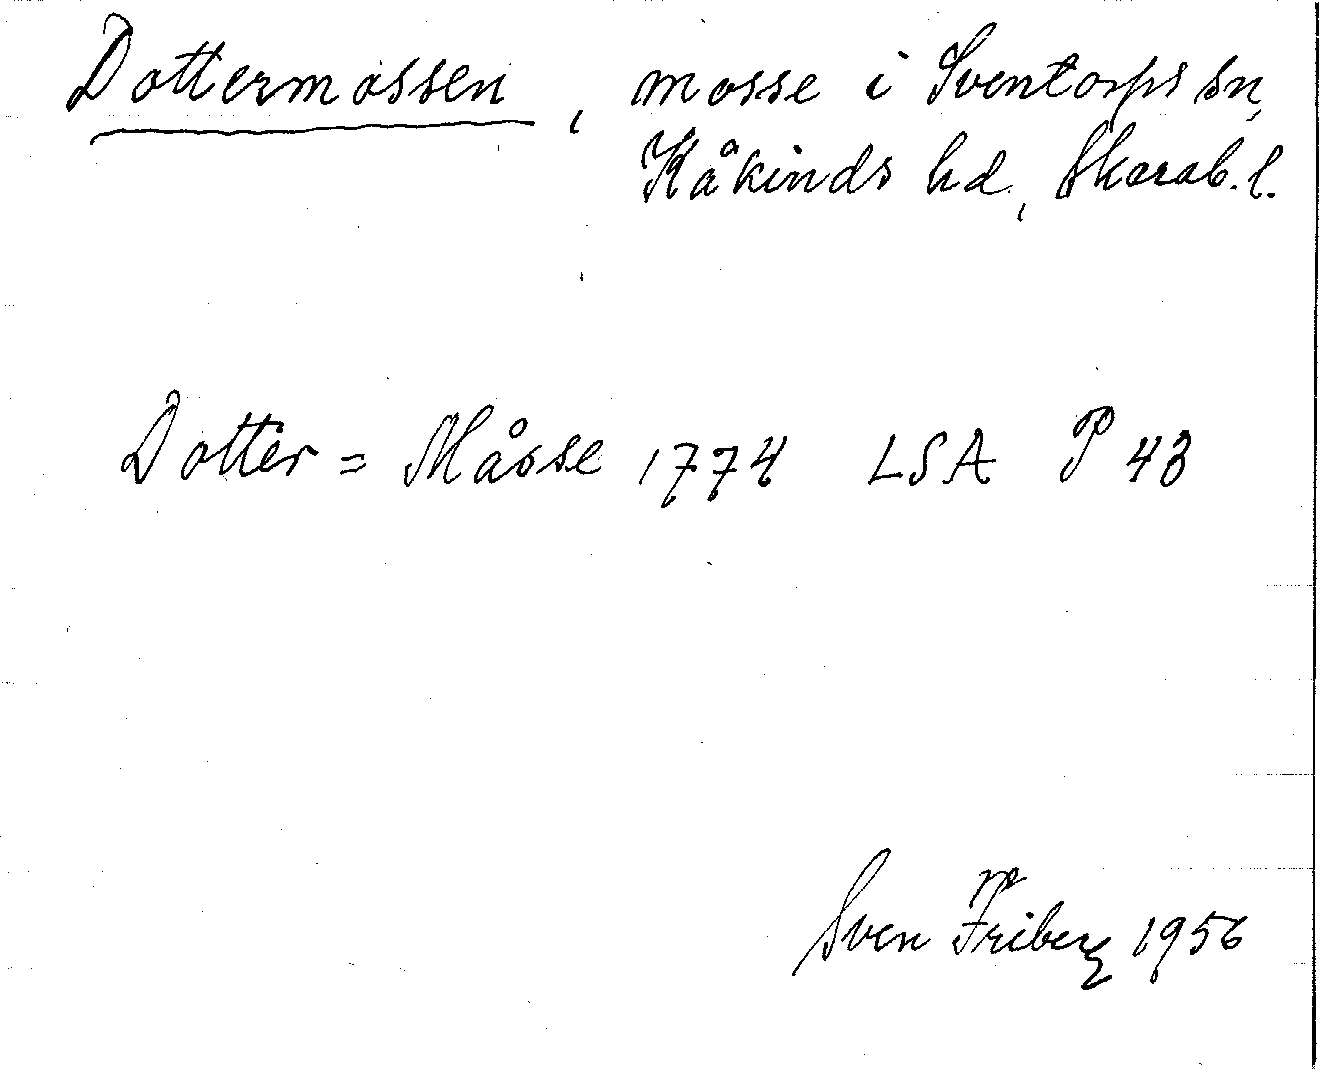 Dottermossen, mosse i Sventorps sn,
Kåkinds hd, Skarab. l.
Dotter = Måsse 1774 LSA P 43
Sven Friberg 1956